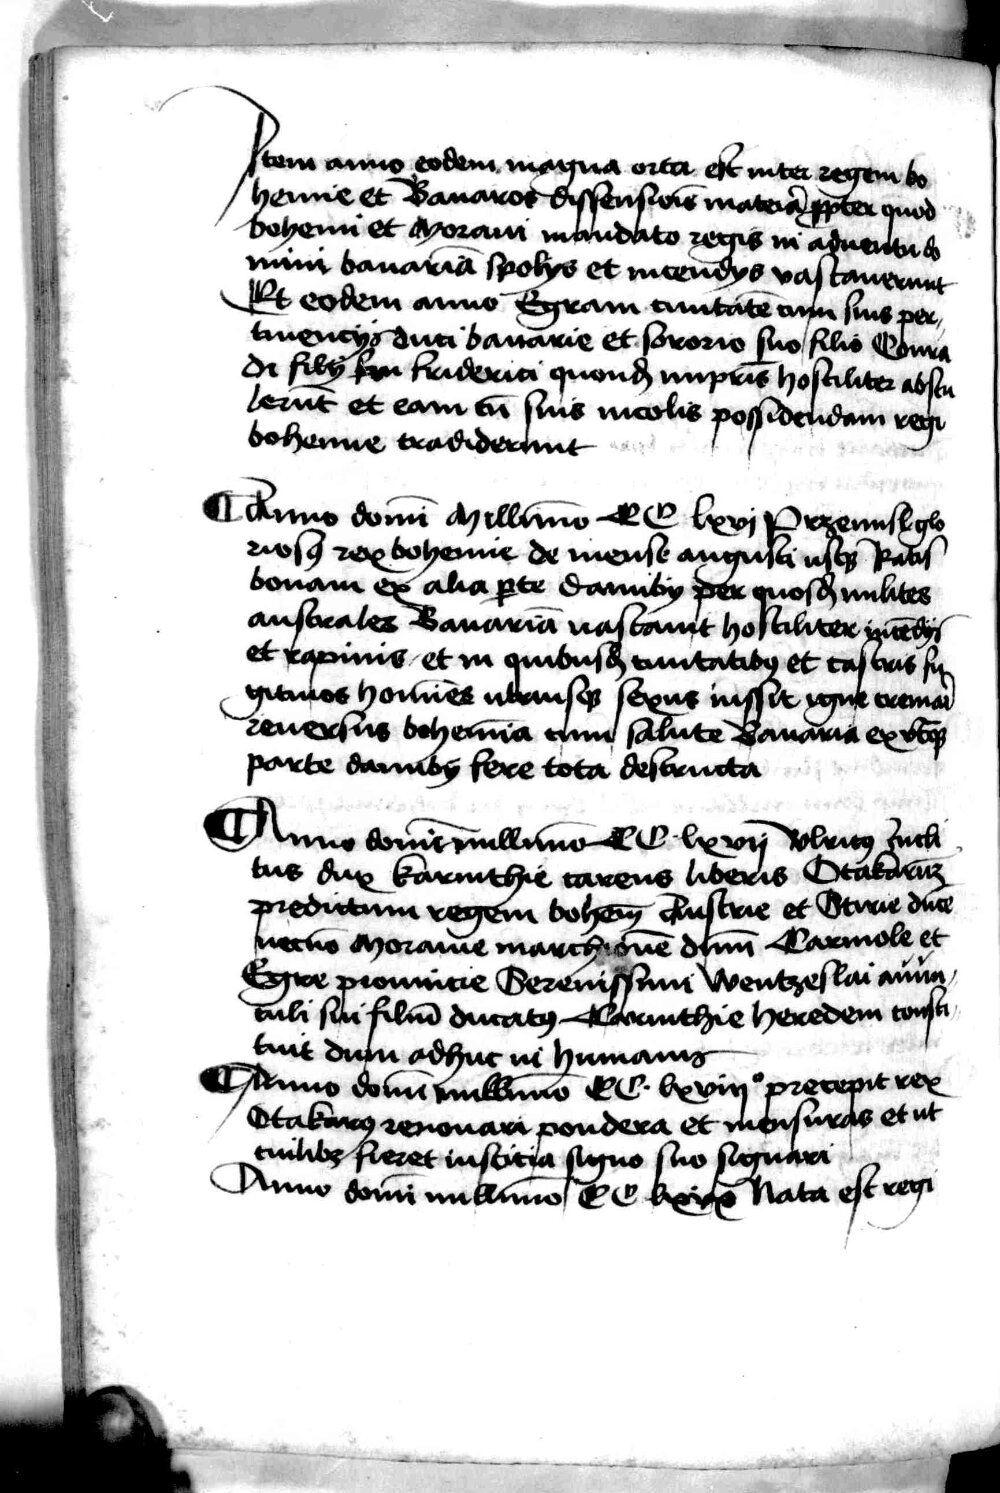 Item anno eodem magna orta est inter regem bo
hemie et Bauaros dissensiōis materia ꝓpter quod
bohemi et Moraui mandato regis in aduentu do
mini bauariā spolijs et incendijs vastauerunt
Et eodem anno Egram ciuitatē cum suis per
tinencijs duci bauarie et sororio suo filio Conra
di filij friderici quondā impr̄is hostiliter abstu
lerūt et eam cū suis incolis possidendam regi
bohemie tradiderunt
Anno domī Millīmo CC lxvj Przemisl glo
riosꝯ rex bohemie de mense augusti usqꝫ Ratis
bonam ex alia ꝑte danubij per quosdā milites
australes Bauariā uastauit hostiliter incēdijs
et rapinis et in quibusdā ciuitatibꝯ et castris fu
gitiuos homīes utriusqꝫ sexus iussit igne cremari
reuersus bohemia cum salute Bauaria ex utraqꝫ
parte danubij fere tota destructa
Anno domī millīmo CC lxvij Vlricꝯ Incli
tus dux karinthie carens liberis Otakarūm
predictum regem bohem̄ Austrie et Stirie duce
necnō Morauie marchionē dnm̄ Carniole et
Egre prouincie Serenissimi Wentzeslai auun
culi sui filiū ducatꝯ Carinthie heredem consti
tuit dum adhuc in humanis
Anno domī millīmo CC lxviij° precepit rex
Otakarꝯ renouari pondera et mensuras et ut
cuilibꝫ fieret iusticia signo suo signari
Anno domī millīmo CC lxix Nata est regi